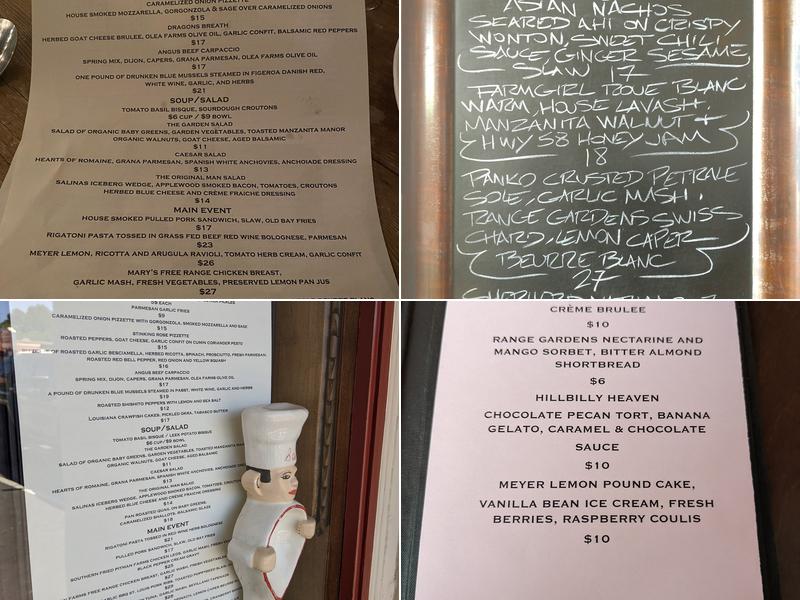 CARAMELIZED ONION PIZZETTE
HOUSE SMOKED MOZZARELLA, GORGONZOLA & SAGE OVER CARAMELIZED ONIONS
$15
DRAGONS BREATH
HERBED GOAT CHEESE BRULEE, OLEA FARMS OLIVE OIL, GARLIC CONFIT, BALSAMIC RED PEPPERS
$17
ANGUS BEEF CARPACCIO
SPRING MIX, DIJON, CAPERS, GRANA PARMESAN, OLEA FARMS OLIVE OIL
$17
ONE POUND OF DRUNKEN BLUE MUSSELS STEAMED IN FIGEROA DANISH RED,
WHITE WINE, GARLIC, AND HERBS
$21
SOUP/SALAD
TOMATO BASIL BISQUE, SOURDOUGH CROUTONS
$6 CUP / $9 BOWL
THE GARDEN SALAD
SALAD OF ORGANIC BABY GREENS, GARDEN VEGETABLES, TOASTED MANZANITA MANOR
ORGANIC WALNUTS, GOAT CHEESE, AGED BALSAMIC
$11
CAESAR SALAD
HEARTS OF ROMAINE, GRANA PARMESAN, SPANISH WHITE ANCHOVIES, ANCHOIADE DRESSING
$13
THE ORIGINAL MAN SALAD
SALINAS ICEBERG WEDGE, APPLEWOOD SMOKED BACON, TOMATOES, CROUTONS
HERBED BLUE CHEESE AND CRÈME FRAICHE DRESSING
$14
MAIN EVENT
HOUSE SMOKED PULLED PORK SANDWICH, SLAW, OLD BAY FRIES
$17
RIGATONI PASTA TOSSED IN GRASS FED BEEF RED WINE BOLOGNESE, PARMESAN
$23
MEYER LEMON, RICOTTA AND ARUGULA RAVIOLI, TOMATO HERB CREAM, GARLIC CONFIT
$26
MARY'S FREE RANGE CHICKEN BREAST,
GARLIC MASH, FRESH VEGETABLES, PRESERVED LEMON PAN JUS
$27
ASIAN NACHOS
SEARED AHI ON CRISPY
WONTON, SWEET CHILI
SAUCE, GINGER SESAME
SLAW 17
FARMGIRL TROUE BLANC
WARM, HOUSE LAVASH,
MANZANITA WALNUT +
HWY 58 HONEY JAM
18
PANKO CRUSTED PETRALE
SOLE, GARLIC MASH,
RANGE GARDENS SWISS
CHARD, LEMON CAPER
BEURRE BLANC
27
$9 EACH
PARMESAN GARLIC FRIES
$9
CARAMELIZED ONION PIZZETTE WITH GORGONZOLA, SMOKED MOZZARELLA AND SAGE
$15
STINKING ROSE PIZZETTE
ROASTED PEPPERS, GOAT CHEESE, GARLIC CONFIT ON CUMIN CORIANDER PESTO
$15
OF ROASTED GARLIC BESCIAMELLA, HERBED RICOTTA, SPINACH, PROSCIUTTO, FRESH PARMESAN,
ROASTED RED BELL PEPPER, RED ONION AND YELLOW SQUASH
$16
ANGUS BEEF CARPACCIO
SPRING MIX, DIJON, CAPERS, GRANA PARMESAN, OLEA FARMS OLIVE OIL
$17
A POUND OF DRUNKEN BLUE MUSSELS STEAMED IN PABST, WHITE WINE, GARLIC AND HERBS
$19
ROASTED SHISHITO PEPPERS WITH LEMON AND SEA SALT
$12
LOUISIANA CRAWFISH CAKES, PICKLED OKRA, TABASCO BUTTER
$17
SOUP/SALAD
TOMATO BASIL BISQUE / LEEK POTATO BISQUE
$6 CUP/$9 BOWL
THE GARDEN SALAD
SALAD OF ORGANIC BABY GREENS, GARDEN VEGETABLES, TOASTED MANZANITA
ORGANIC WALNUTS, GOAT CHEESE, AGED BALSAMIC
$11
CAESAR SALAD
HEARTS OF ROMAINE, GRANA PARMESAN, SPANISH WHITE ANCHOVIES, ANCHOIADE
$13
THE ORIGINAL MAN SALAD
SALINAS ICEBERG WEDGE, APPLEWOOD SMOKED BACON, TOMATOES, CROUTONS
HERBED BLUE CHEESE AND CRÈME FRAICHE DRESSING
$14
PAN ROASTED QUAIL ON BABY GREENS,
CARAMELIZED SHALLOTS, BALSAMIC GLAZE
$18
MAIN EVENT
RIGATONI PASTA TOSSED IN RED WINE HERB BOLOGNESE
$21
PULLED PORK SANDWICH, SLAW, OLD BAY FRIES
$17
SOUTHERN FRIED PITMAN FARMS CHICKEN LEGS, GARLIC MASH, FRESH
BLACK PEPPER CREAM GRAVY
$25
FARMS FREE RANGE CHICKEN BREAST, GARLIC MASH, FRESH VEGETABLES
$27
BBQ ST. LOUIS PORK RIBS
CRÈME BRULEE
$10
RANGE GARDENS NECTARINE AND
MANGO SORBET, BITTER ALMOND
SHORTBREAD
$6
HILLBILLY HEAVEN
CHOCOLATE PECAN TORT, BANANA
GELATO, CARAMEL & CHOCOLATE
SAUCE
$10
MEYER LEMON POUND CAKE,
VANILLA BEAN ICE CREAM, FRESH
BERRIES, RASPBERRY COULIS
$10